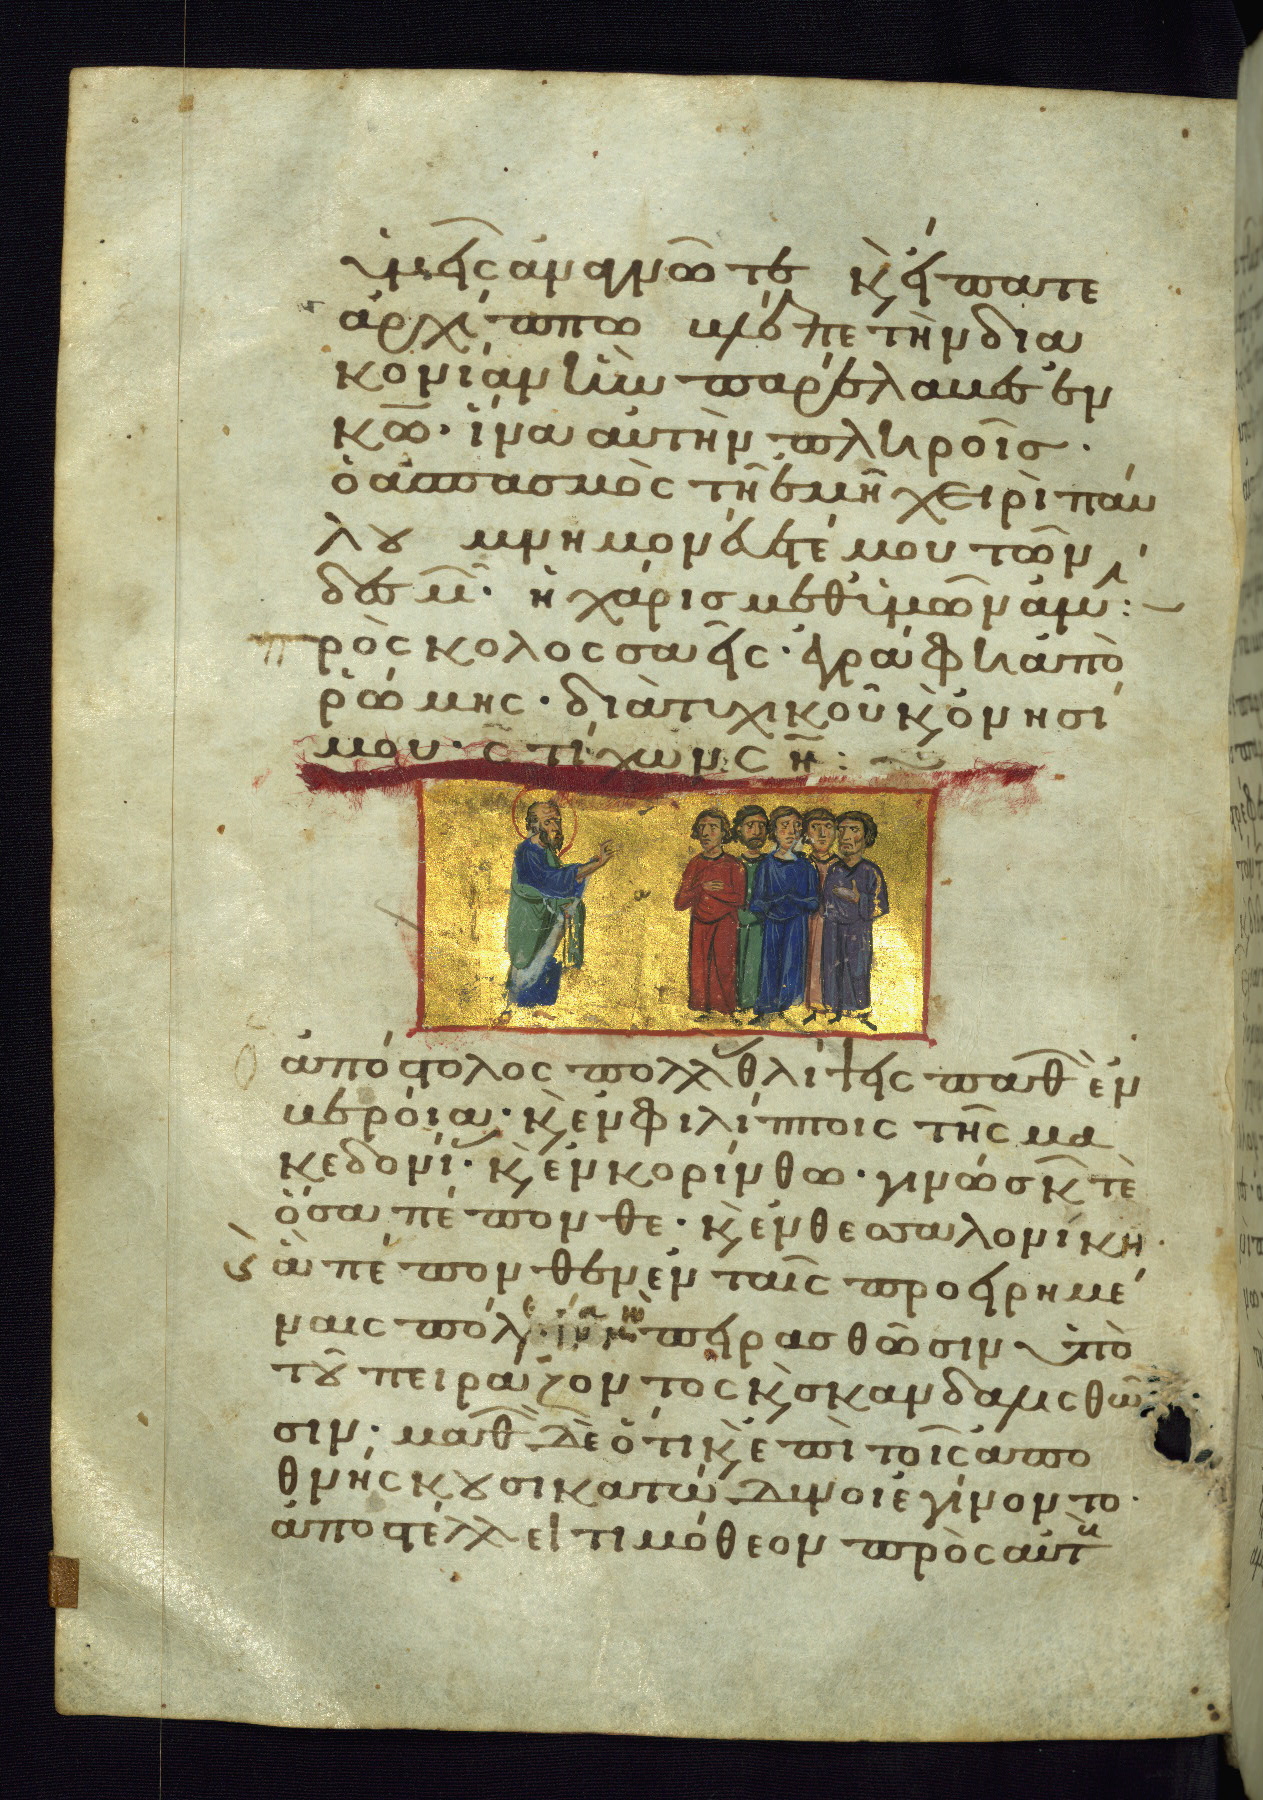 ὑμεῖς ἀναγνῶτε κ(αὶ) εἴπατε
ἀρχίππω βλέπε τὴν δια
κονίαν ἣν παρέλαβες ἐν
κω̅· ἵνα αὐτὴν πληροῖσ·
ὁ ἀσπασμὸς τῆ ἐμῆ χειρὶ παύ
λου μνημονεύετέ μου τῶν
δεσμ· ἡ χάρισ μεθ ὑμῶν ἀμήν :
πρὸς κολοσσαεῖς· ἐγράφη ἀπὸ
ῥώμης· διὰ τυχικοῦ κ(αὶ) ὀνησί
μου· στίχων ση :
ἀπόστολος πολλ θλίψεις παθ ἐν
βεροία· κ(αὶ) ἐν φιλίπποις τῆς μα
κεδονί· κ(αὶ) ἐν κορίνθω· γινώσκ τὲ
ὅσα πέπονθε· κ(αὶ) ἐν θεσσαλονίκη·
ἃ πέπονθεν ἐν ταῖς προειρημέ
ναις πόλ· ἵνα μὴ πειρασθῶσιν ὑπὸ
τοῦ πειράζοντος κ(αὶ) σκανδαλισθῶ
σιν· μαθ δὲ ὅτι κ(αὶ) ἐπὶ τοῖς ἀπο
θνήσκουσι κατώδυνοι ἐγίνοντο·
ἀποστέλλει τιμόθεον πρὸς αὐτ